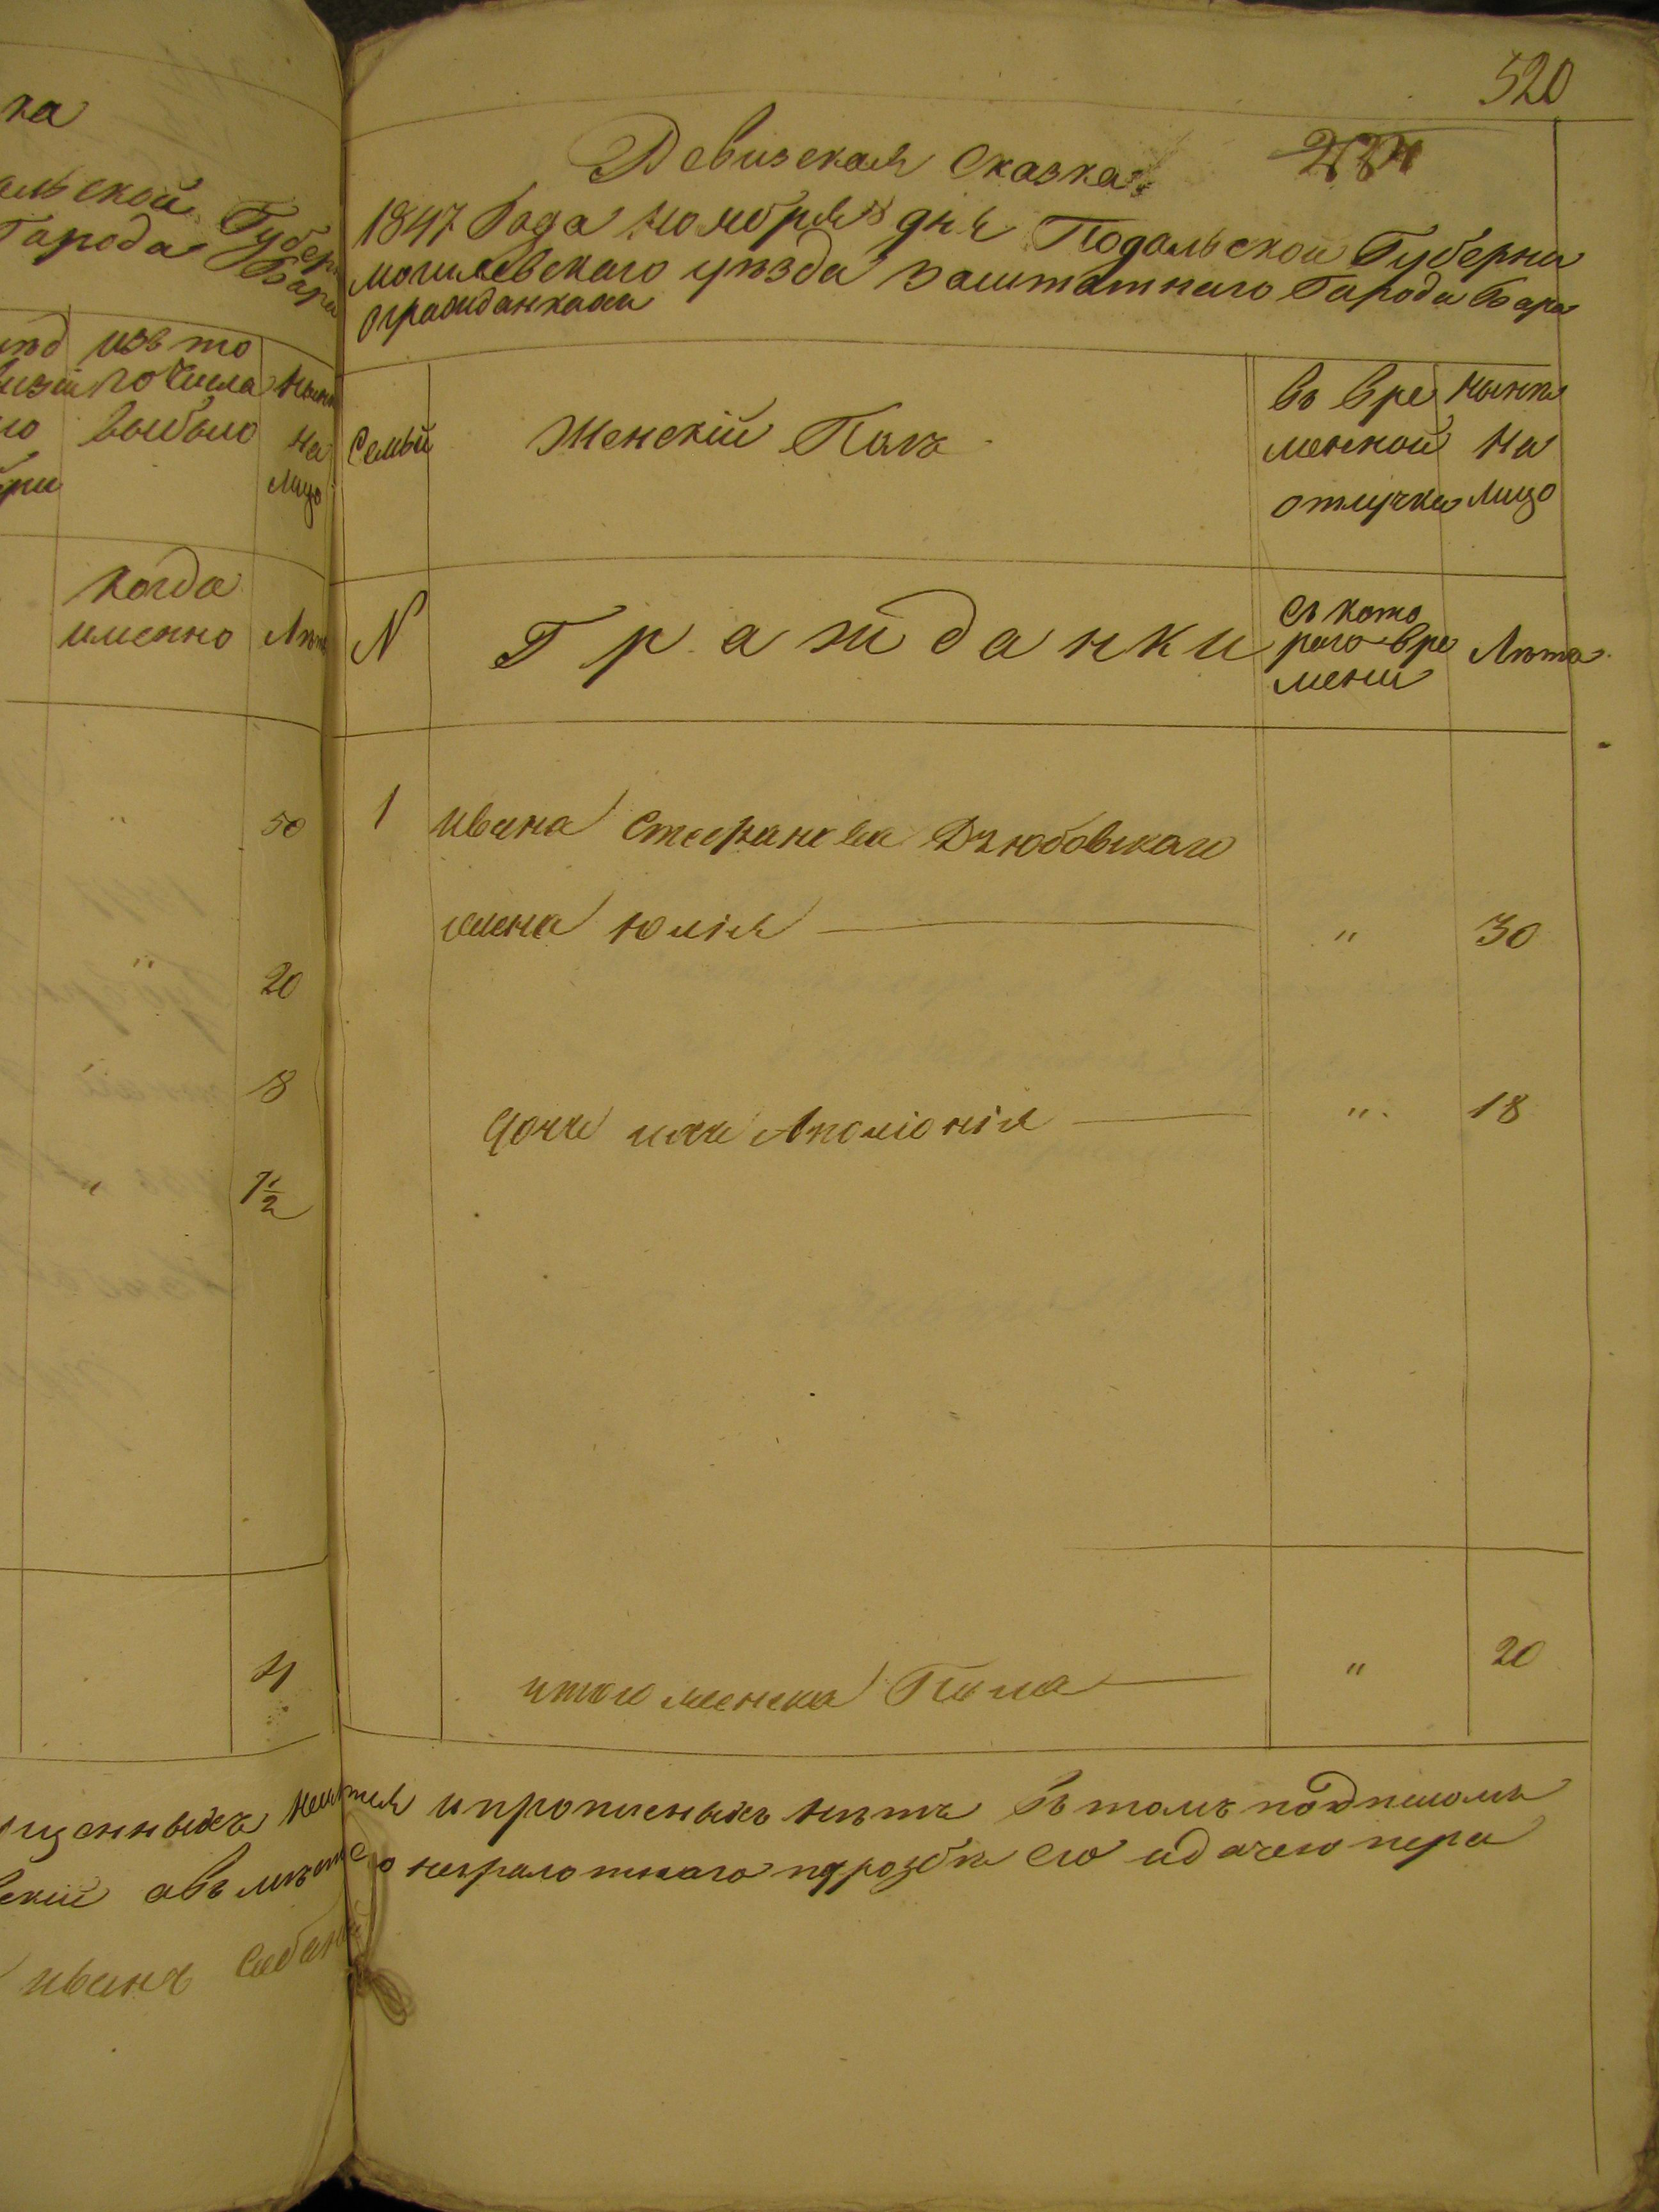 ка
альской Губер
Города Бара
изъ то
го числа
выбыло
Нынѣ
на
лицо
когда
именно
Лѣта
50
20
8
1½
4
520
Ревизская Сказка
1847 Года Ноября дня Подольской Губерни
могилевскаго уѣзда Заштатнаго Города Бара
о гражданкахъ
Семьи
Женскій Полъ
Въ вре
менной
отлучке
Нынѣ
на
лицо
N
Гражданки
Съ кото
раго вре
мени
Лѣта
1 Ивана Стефанова Дзюбовскаго
жена Юлія " 30
дочь Аполіонія " 18
итого женска Пола " 20
и прописныхъ нѣтъ Въ томъ подписомъ
неграмотнаго по прозбѣ его
Иванъ